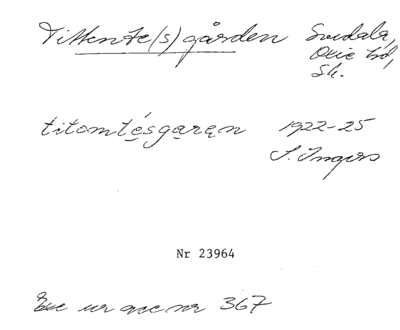 Tittente(s)gården Svedala,
Oxie hd,
Sk.
titomtésgaren 1922-25
I. Ingers
Nr 23964
Exc ur acc nr 367